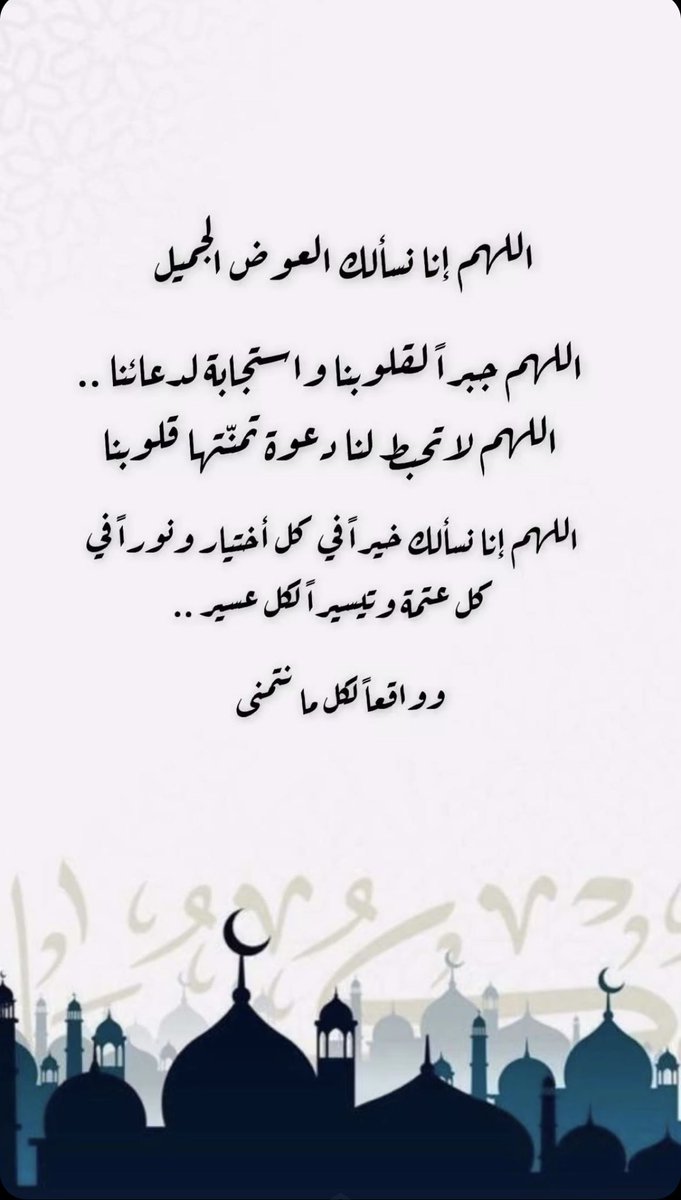 اللهم إنا نسألك العوض الجميل
اللهم جبراً لقلوبنا واستجابة لدعائنا ..
اللهم لا تحبط لنا دعوة تمنّتها قلوبنا
اللهم إنا نسألك خيراً في كل أختيار ونوراً في
كل عتمة وتيسيراً لكل عسير ..
وواقعاً لكل ما نتمنى